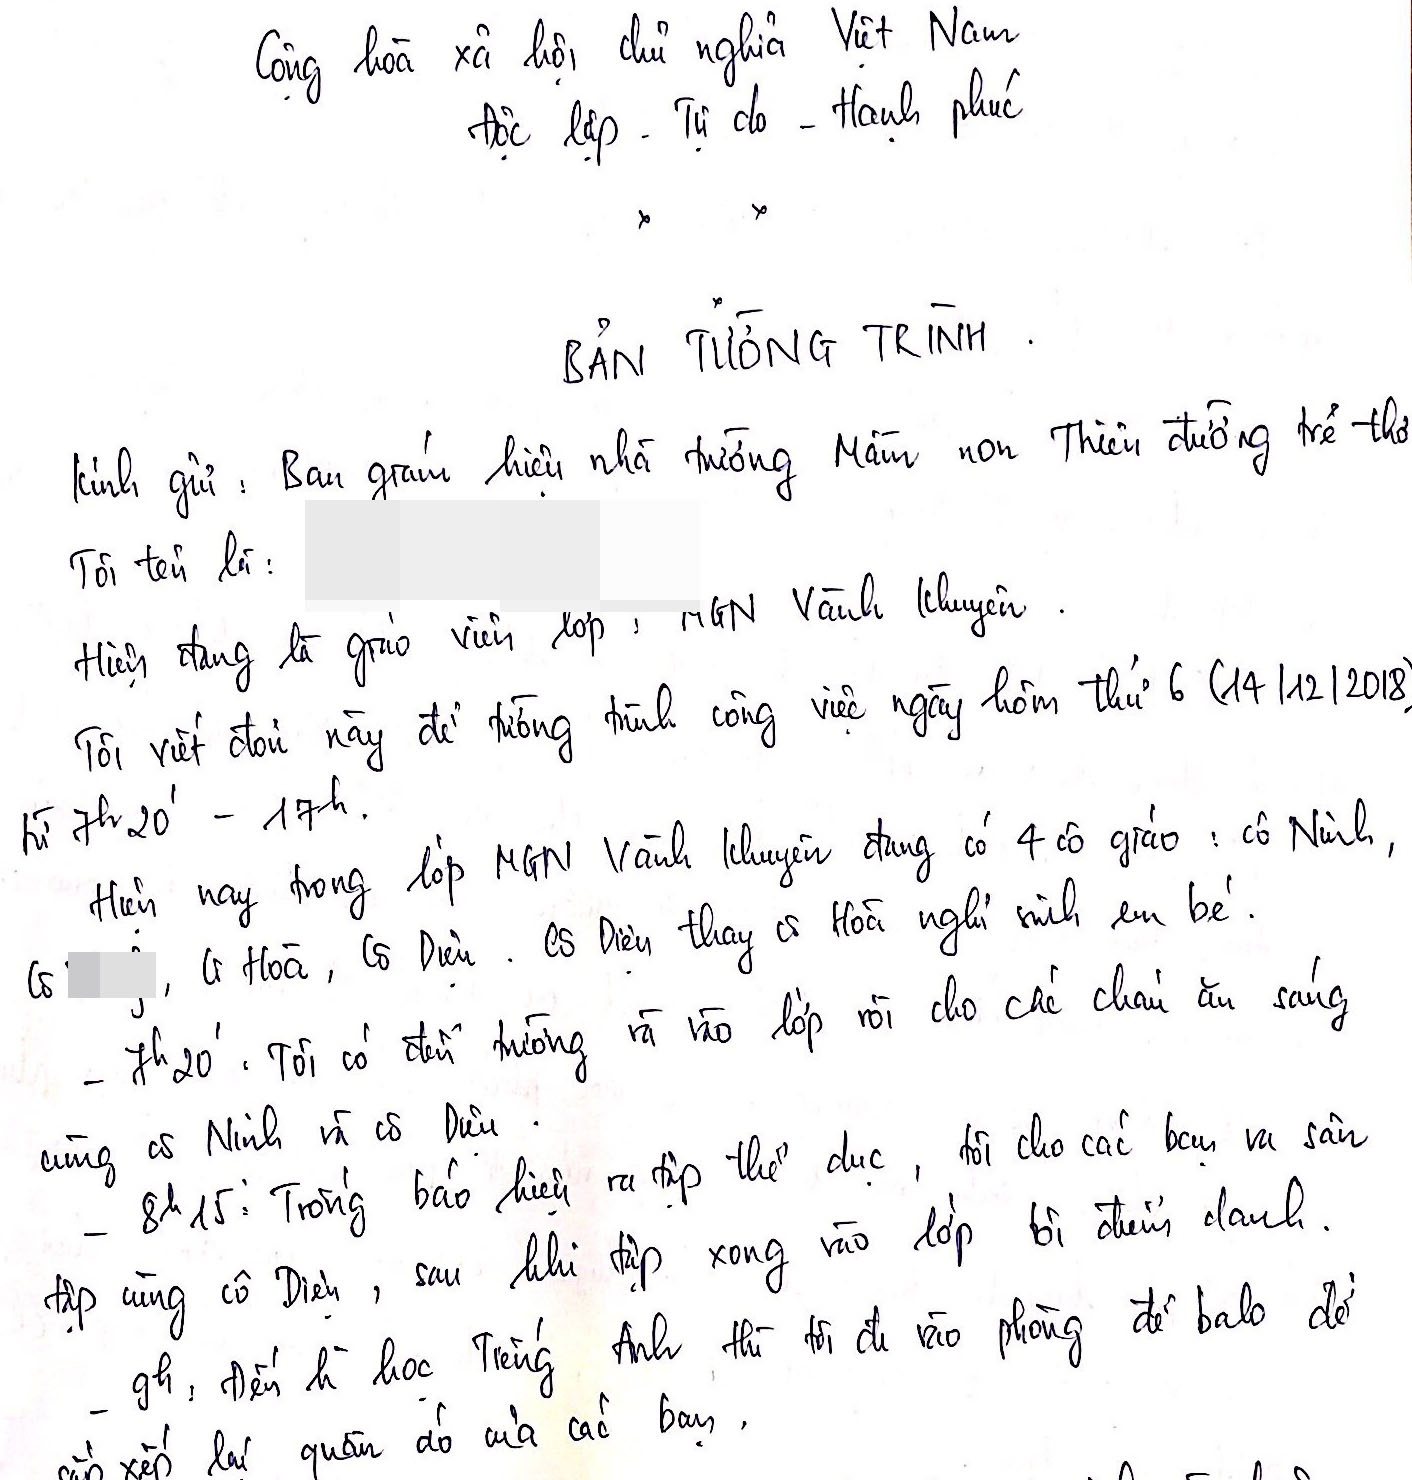 Cộng hoà xã hội chủ nghĩa Việt Nam
Độc lập - Tự do - Hạnh phúc
BẢN TƯỜNG TRÌNH.
Kính gửi: Ban giám hiệu nhà trường Mầm non Thiên đường trẻ thơ
Tôi tên là:
Hiện đang là giáo viên lớp: MGN Vành Khuyên.
Tôi viết đơn này để tường trình công việc ngày hôm thứ 6 (14/12/2018)
từ 7h20' - 17h.
Hiện nay trong lớp MGN Vành Khuyên đang có 4 cô giáo: cô Ninh,
Cô , Cô Hoà, Cô Diện. Cô Diện thay cô Hoà nghỉ sinh em bé.
- 7h20': Tôi có đến trường và vào lớp rồi cho các cháu ăn sáng
cùng cô Ninh và cô Diện.
- 8h15: Trống báo hiệu ra tập thể dục, tôi cho các bạn ra sân
tập cùng cô Diện, sau khi tập xong vào lớp tôi điểm danh.
- 9h: Đến h học Tiếng Anh thì tôi đi vào phòng để balo để
sắp xếp lại quần áo của các bạn.